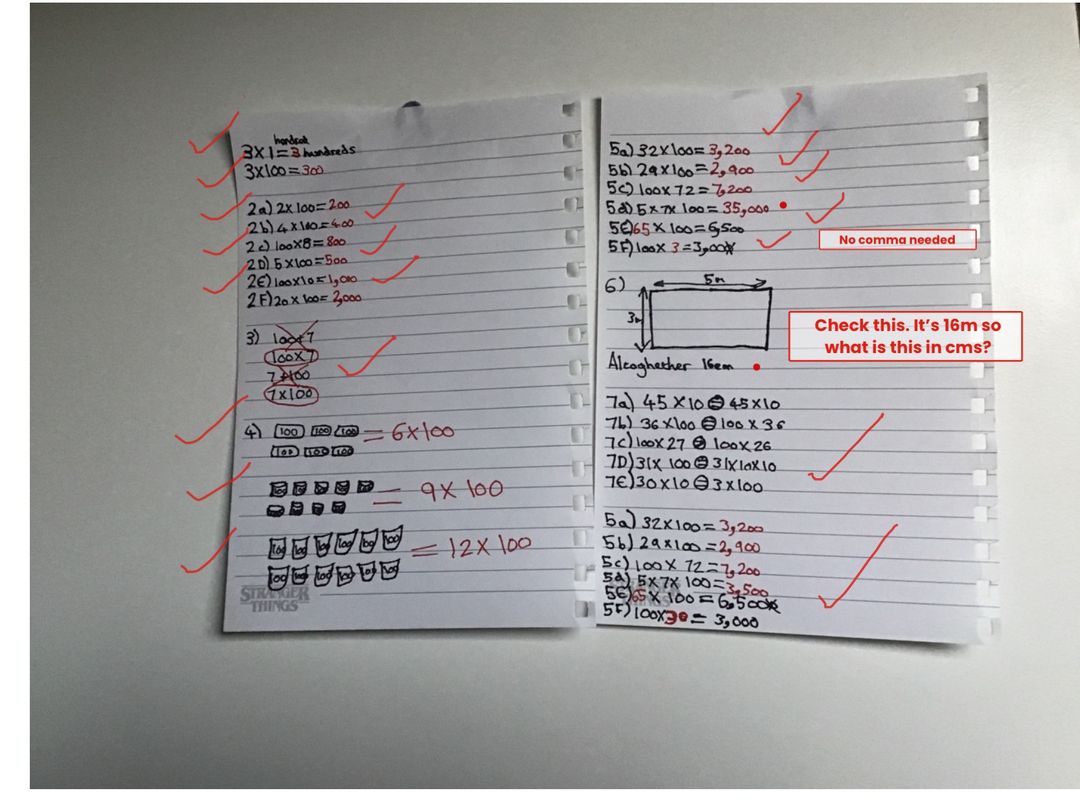 hundred
3x1=3 hundreds
3x100=300
2a) 2x100=200
2b) 4x100=400
2c) 100x8=800
2D) 5x100=500
2E) 100x10=1,000
2F) 20x100=2,000
3) 100+7
100x7
7+100
7x100
4) 100 100 100 = 6x100
100 100 100
= 9x100
100 100 100 100 100 100 = 12x100
100 100 100 100 100 100
STRANGER
THINGS
5a) 32x100=3,200
5b) 29x100=2,900
5c) 100x72=7,200
5d) 5x7x100=35,000
5E) 65x100=6,500
No comma needed
5F) 100x3=3,000
6) 5m
3m
Check this. It’s 16m so
what is this in cms?
Alcoghether 16cm
7a) 45x10=45x10
7b) 36x100=100x36
7c) 100x27 100x26
7D) 31x100=31x10x10
7E) 30x10=3x100
5a) 32x100=3,200
5b) 29x100=2,900
5c) 100x72=7,200
5d) 5x7x100=3,500
5E) 65x100=6,500
5F) 100x30=3,000